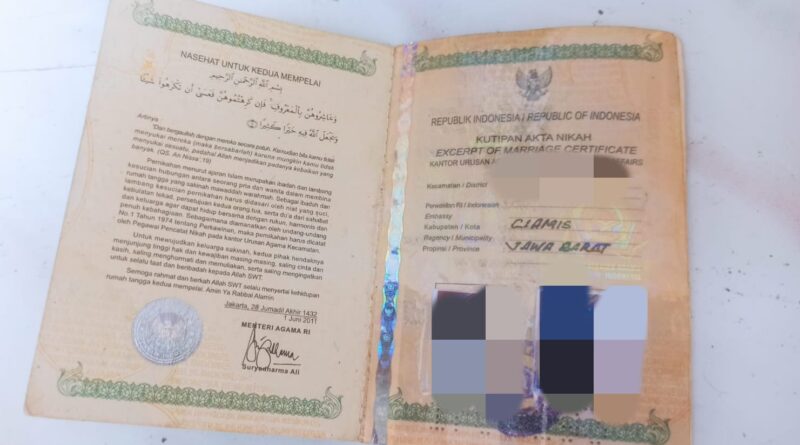 NASEHAT UNTUK KEDUA MEMPELAI
بِسْمِ اللَّهِ الرَّحْمٰنِ الرَّحِيْمِ
وَعَاشِرُوهُنَّ بِالْمَعْرُوفِ فَإِن كَرِهْتُمُوهُنَّ فَعَسَىٰ أَن تَكْرَهُوا شَيْئًا
وَيَجْعَلَ اللَّهُ فِيهِ خَيْرًا كَثِيرًا
Artinya :
"Dan bergaullah dengan mereka secara patuh. Kemudian bila kamu tidak
menyukai mereka (maka bersabarlah) karena mungkin kamu tidak
menyukai sesuatu, padahal Allah menjadikan padanya kebaikan yang
banyak. (QS. An Nissa : 19)
Pernikahan menurut ajaran Islam merupakan ibadah dan lambang
kesucian hubungan antara seorang pria dan wanita dalam membina
rumah tangga yang sakinah mawaddah warahmah. Sebagai ibadah dan
lambang kesucian pernikahan harus didasari oleh niat yang suci,
ketulusan tekad, persetujuan kedua orang tua, serta do'a dari sahabat
dan keluarga agar dapat hidup bersama dengan rukun, harmonis dan
penuh kebahagiaan. Sebagaimana diamanatkan oleh undang-undang
No.1 Tahun 1974 tentang Perkawinan, maka pernikahan harus dicatat
oleh Pegawai Pencatat Nikah pada kantor Urusan Agama Kecamatan.
Untuk mewujudkan keluarga sakinah, kedua pihak hendaknya
menjunjung tinggi hak dan kewajiban masing-masing, saling cinta dan
setia, saling menghormati dan memuliakan, serta saling mengingatkan
untuk selalu taat dan beribadah kepada Allah SWT.
Semoga rahmat dan berkah Allah SWT selalu menyertai kehidupan
rumah tangga kedua mempelai. Amin Ya Rabbal Alamin
Jakarta, 28 Jumadil Akhir 1432
1 Juni 2011
MENTERI AGAMA RI
Suryadharma Ali
REPUBLIK INDONESIA / REPUBLIC OF INDONESIA
KUTIPAN AKTA NIKAH
EXCERPT OF MARRIAGE CERTIFICATE
KANTOR URUSAN AFFAIRS
Kecamatan / District
Perwakilan RI / Indonesian
Embassy
Kabupaten / Kota CIAMIS
Regency / Municipality
Propinsi / Province JAWA BARAT